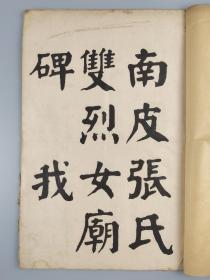 南皮張氏
雙烈女廟
碑 找